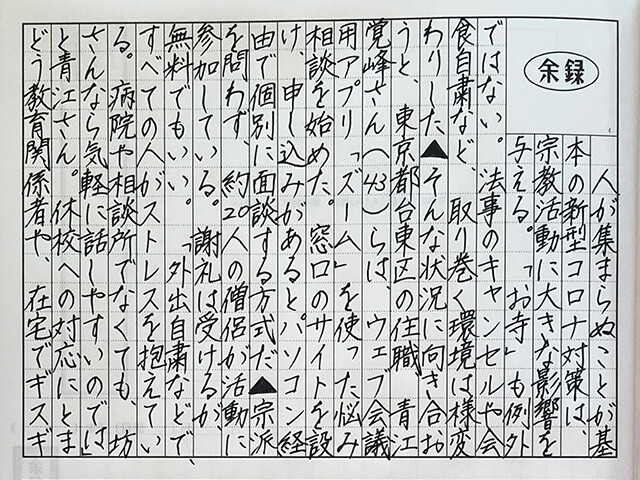 余録
人が集まらぬことが基
本の新型コロナ対策は、
宗教活動に大きな影響を
与える。「お寺」も例外
ではない。法事のキャンセルや会
食自粛など、取り巻く環境は様変
わりした▲そんな状況に向き合お
うと、東京都台東区の住職、青江
覚峰さん(43)らは、ウェブ会議
用アプリ「ズーム」を使った悩み
相談を始めた。窓口のサイトを設
け、申し込みがあるとパソコン経
由で個別に面談する方式だ▲宗派
を問わず、約20人の僧侶が活動に
参加している。謝礼は受けるが、
無料でもいい。「外出自粛などで、
すべての人がストレスを抱えてい
る。病院や相談所でなくても、坊
さんなら気軽に話しやすいのでは」
と青江さん。休校への対応にとま
どう教育関係者や、在宅でギスギ